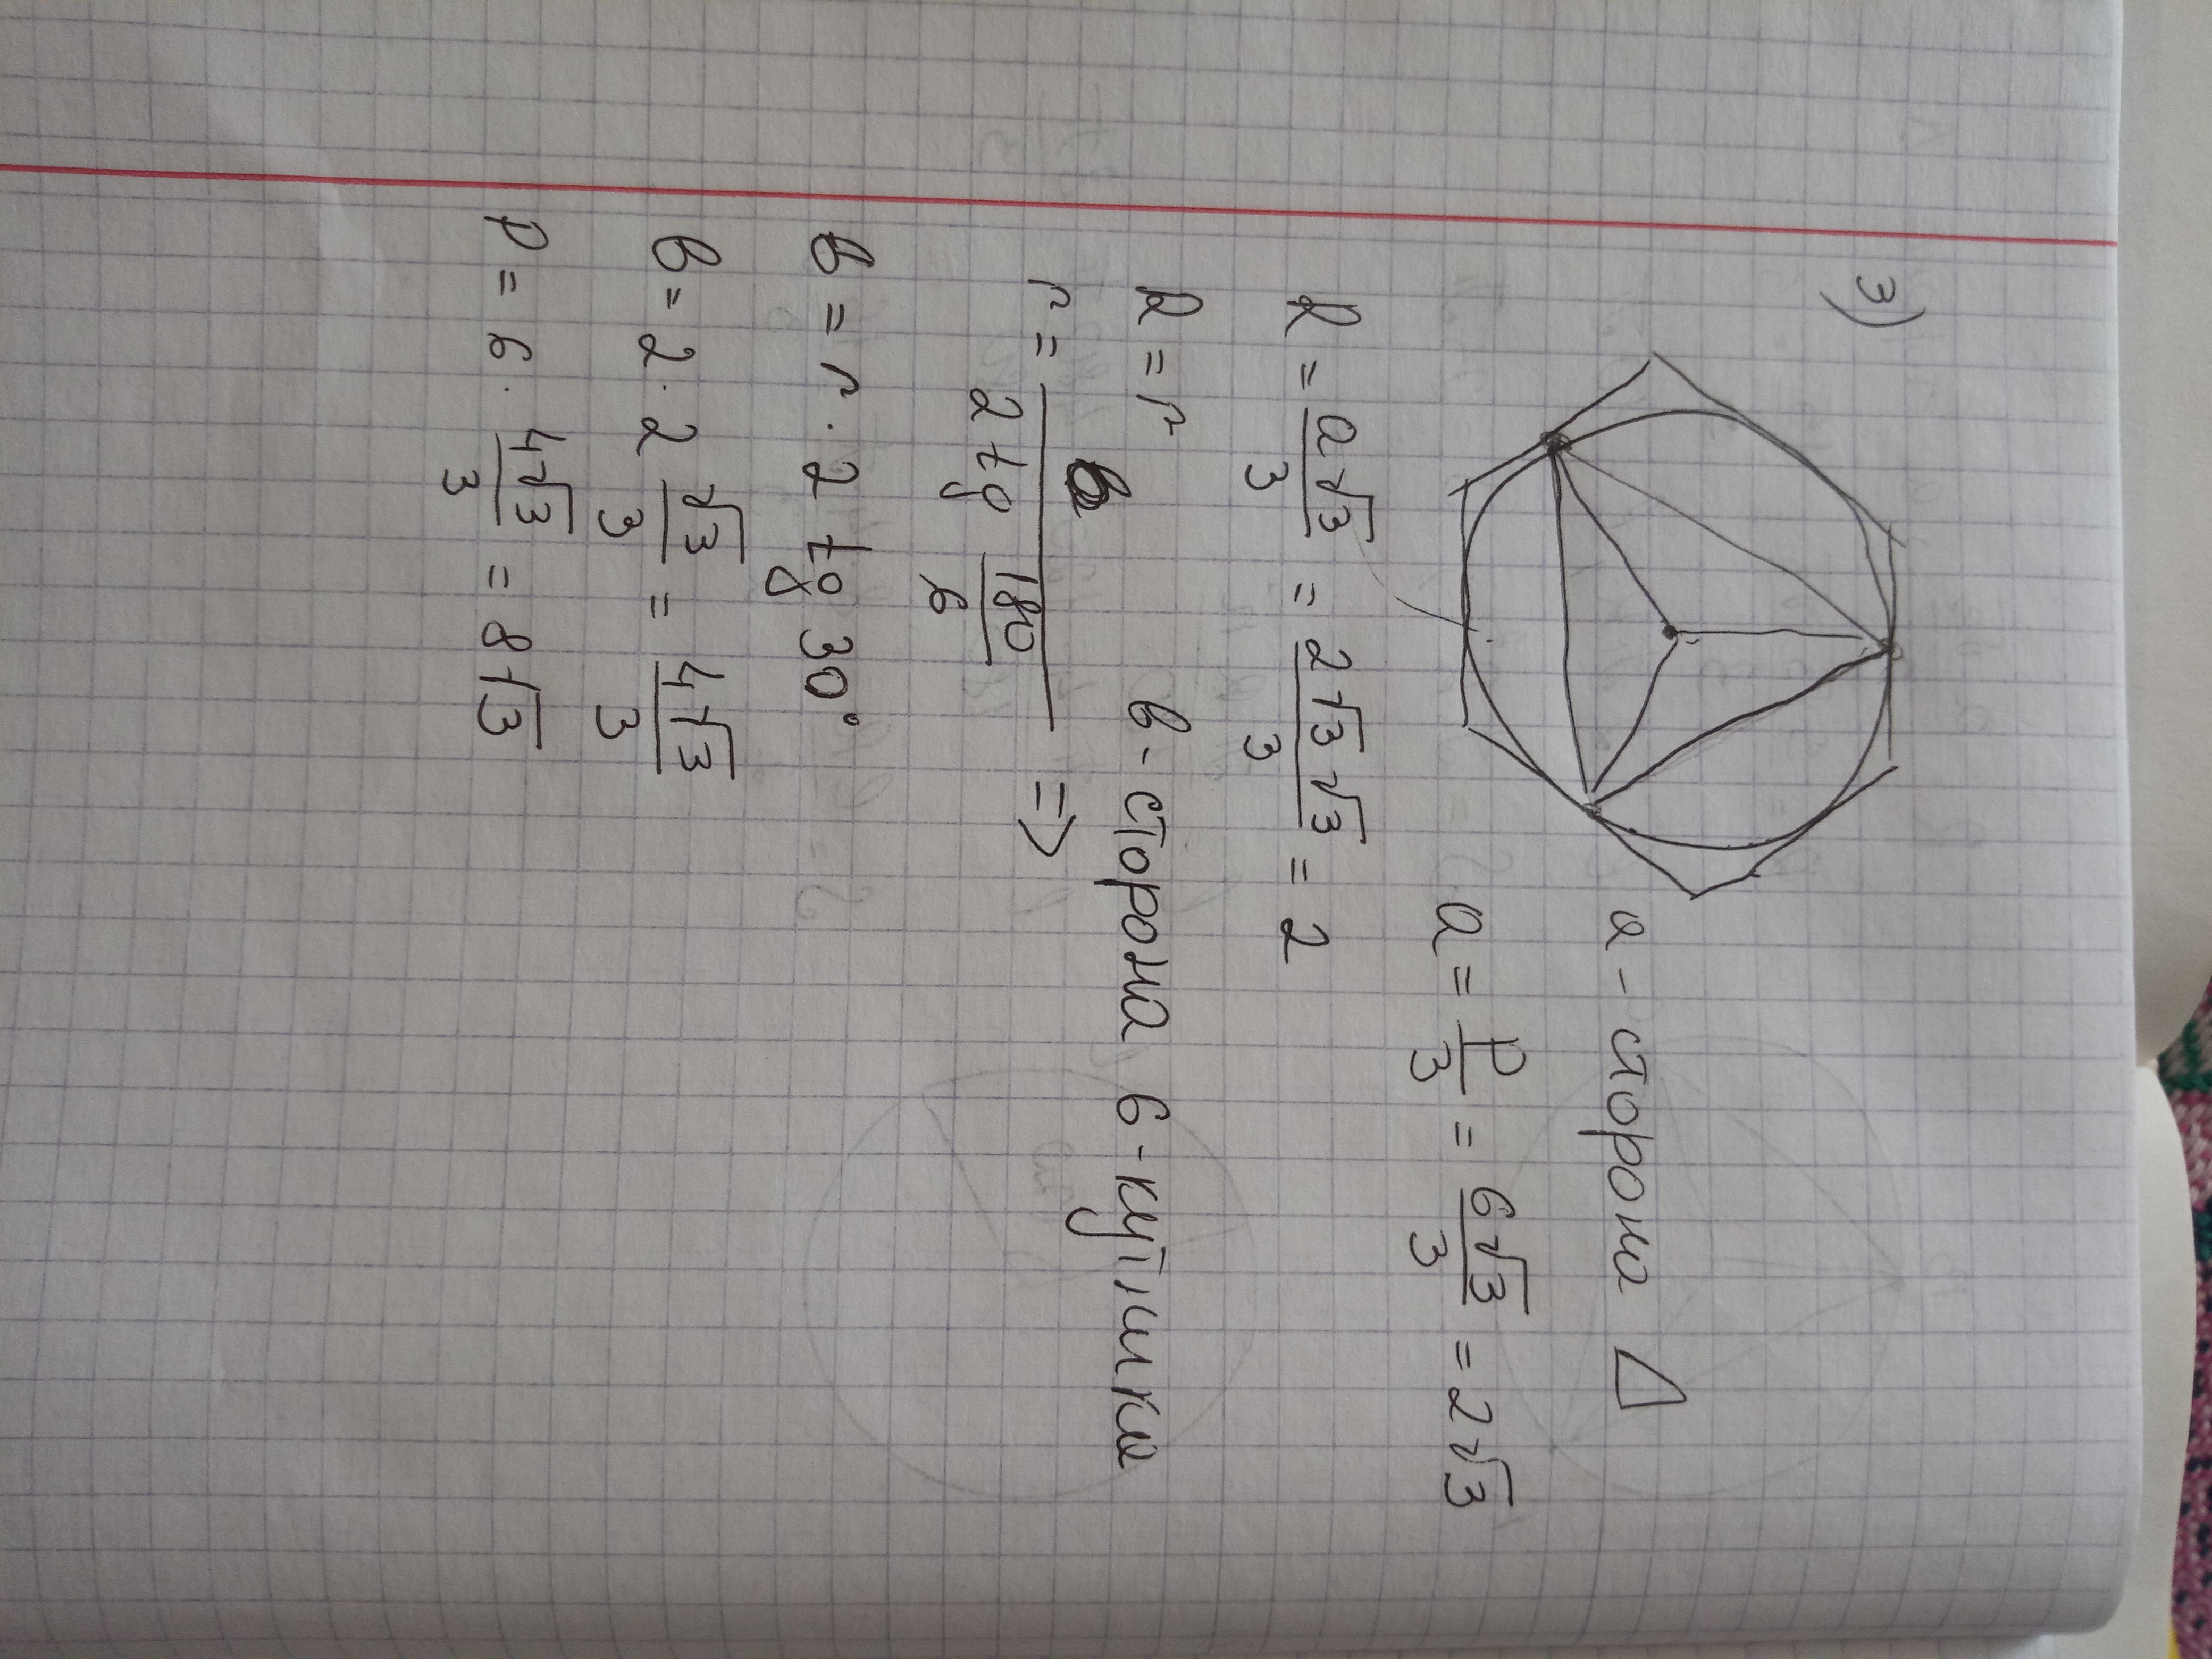 3)
а - сторона △
a = P/3 = 6√3/3 = 2√3
R = a√3/3 = 2√3√3/3 = 2
R = r в - сторона 6-кутника
r = в/(2 tg 180/6) =>
в = r · 2 tg 30°
в = 2 · 2 √3/3 = 4√3/3
P = 6 · 4√3/3 = 8√3